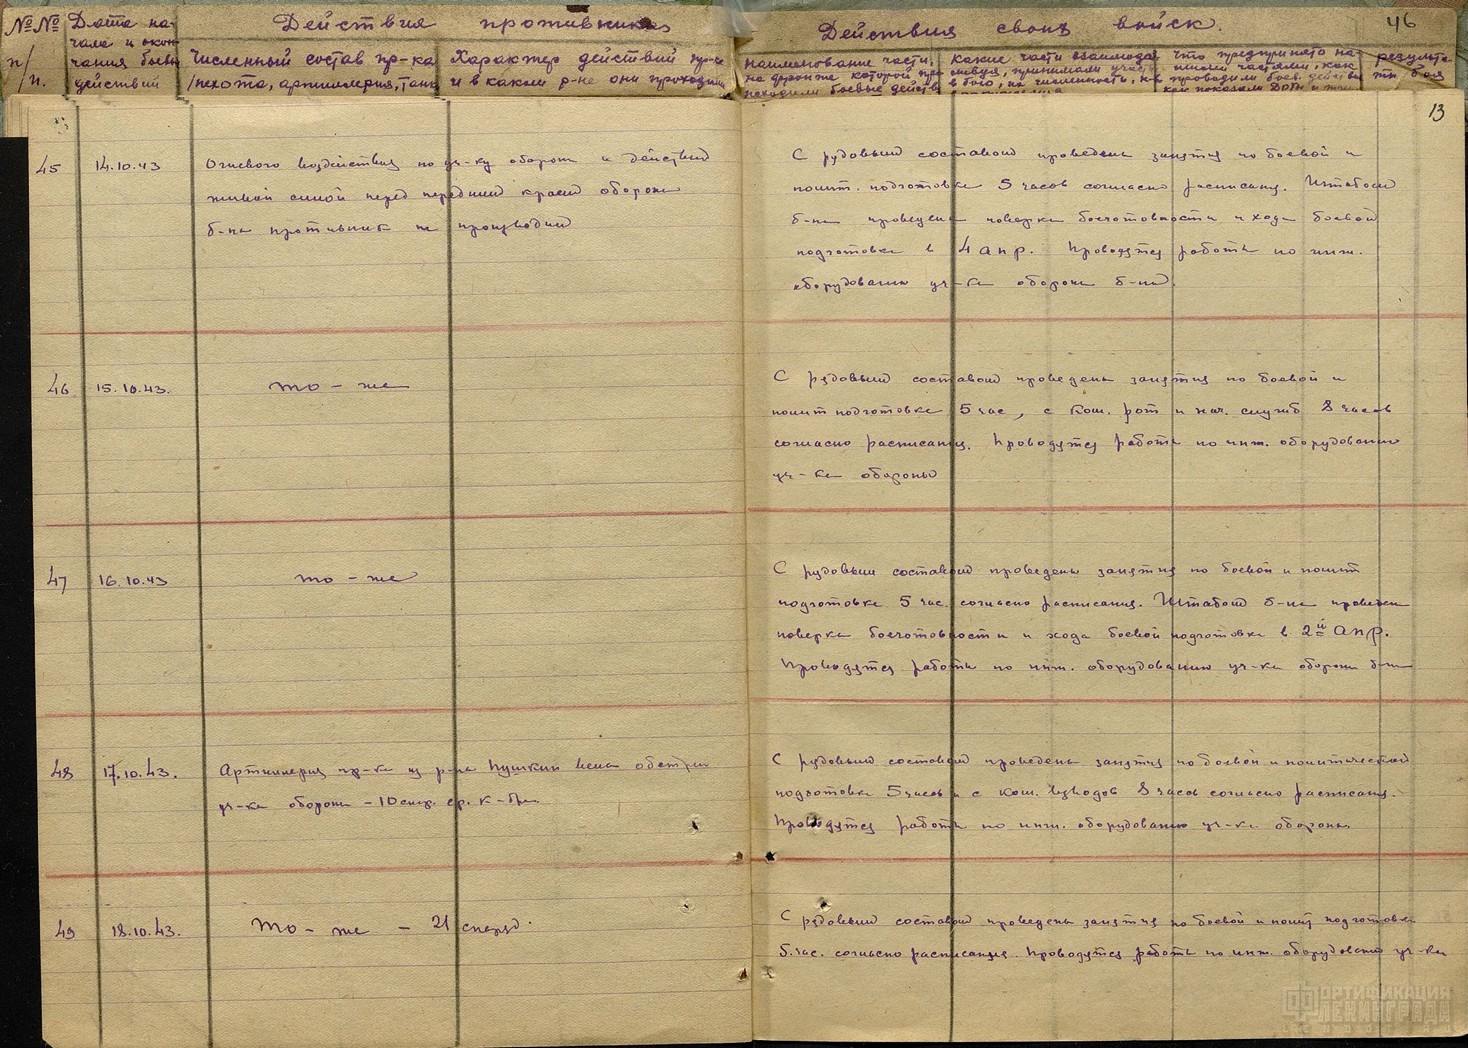 №№ п/п.
Дата начала и окончания боевых действий
Действия противника
Численный состав пр-ка
/пехота, артиллерия, танк
Характер действий пр-ка
и в каком р-не они проходили
Действия своих войск.
46
наименование части,
на фронте которой про
исходили боевые действ
какие части взаимодей
ствуя, принимали участ
в бою, их численность,
что предпринято на
шими частями, как
проводили боев. действ
как показали ДОТы и
результа
ты боя
13
45
14.10.43
Огневого воздействия по уч-ку обороны и действий
живой силой перед передним краем обороны
б-на противник не производил
С рядовым составом проведены занятия по боевой и
полит. подготовке 5 часов согласно расписания. Штабом
б-на проведена поверка боеготовности и хода боевой
подготовки в 4 апр. Проводятся работы по инж.
оборудованию уч-ка обороны б-на.
46
15.10.43.
то - же
С рядовым составом проведены занятия по боевой и
полит подготовке 5 час, с ком. рот и нач. служб 8 часов
согласно расписания. Проводятся работы по инж. оборудованию
уч-ка обороны
47
16.10.43
то - же
С рядовым составом проведены занятия по боевой и полит
подготовке 5 час. согласно расписания. Штабом б-на проведен
поверка боеготовности и хода боевой подготовки в 2й апр.
Проводятся работы по инж. оборудованию уч-ка обороны б-на
48
17.10.43.
Артиллерия пр-ка из р-на Пушкин вела обстрел
уч-ка обороны - 10 снар. ср. к-бра.
С рядовым составом проведены занятия по боевой и политической
подготовке 5 часов и с ком. взводов 8 часов согласно расписания.
Проводятся работы по инж. оборудованию уч-ка обороны.
49
18.10.43.
То - же - 21 снаряд.
С рядовым составом проведены занятия по боевой и полит подготовке
5 час. согласно расписания. Проводятся работы по инж. оборудованию уч-ка
ФОРТИФИКАЦИЯ
ЛЕНИНГРАДА